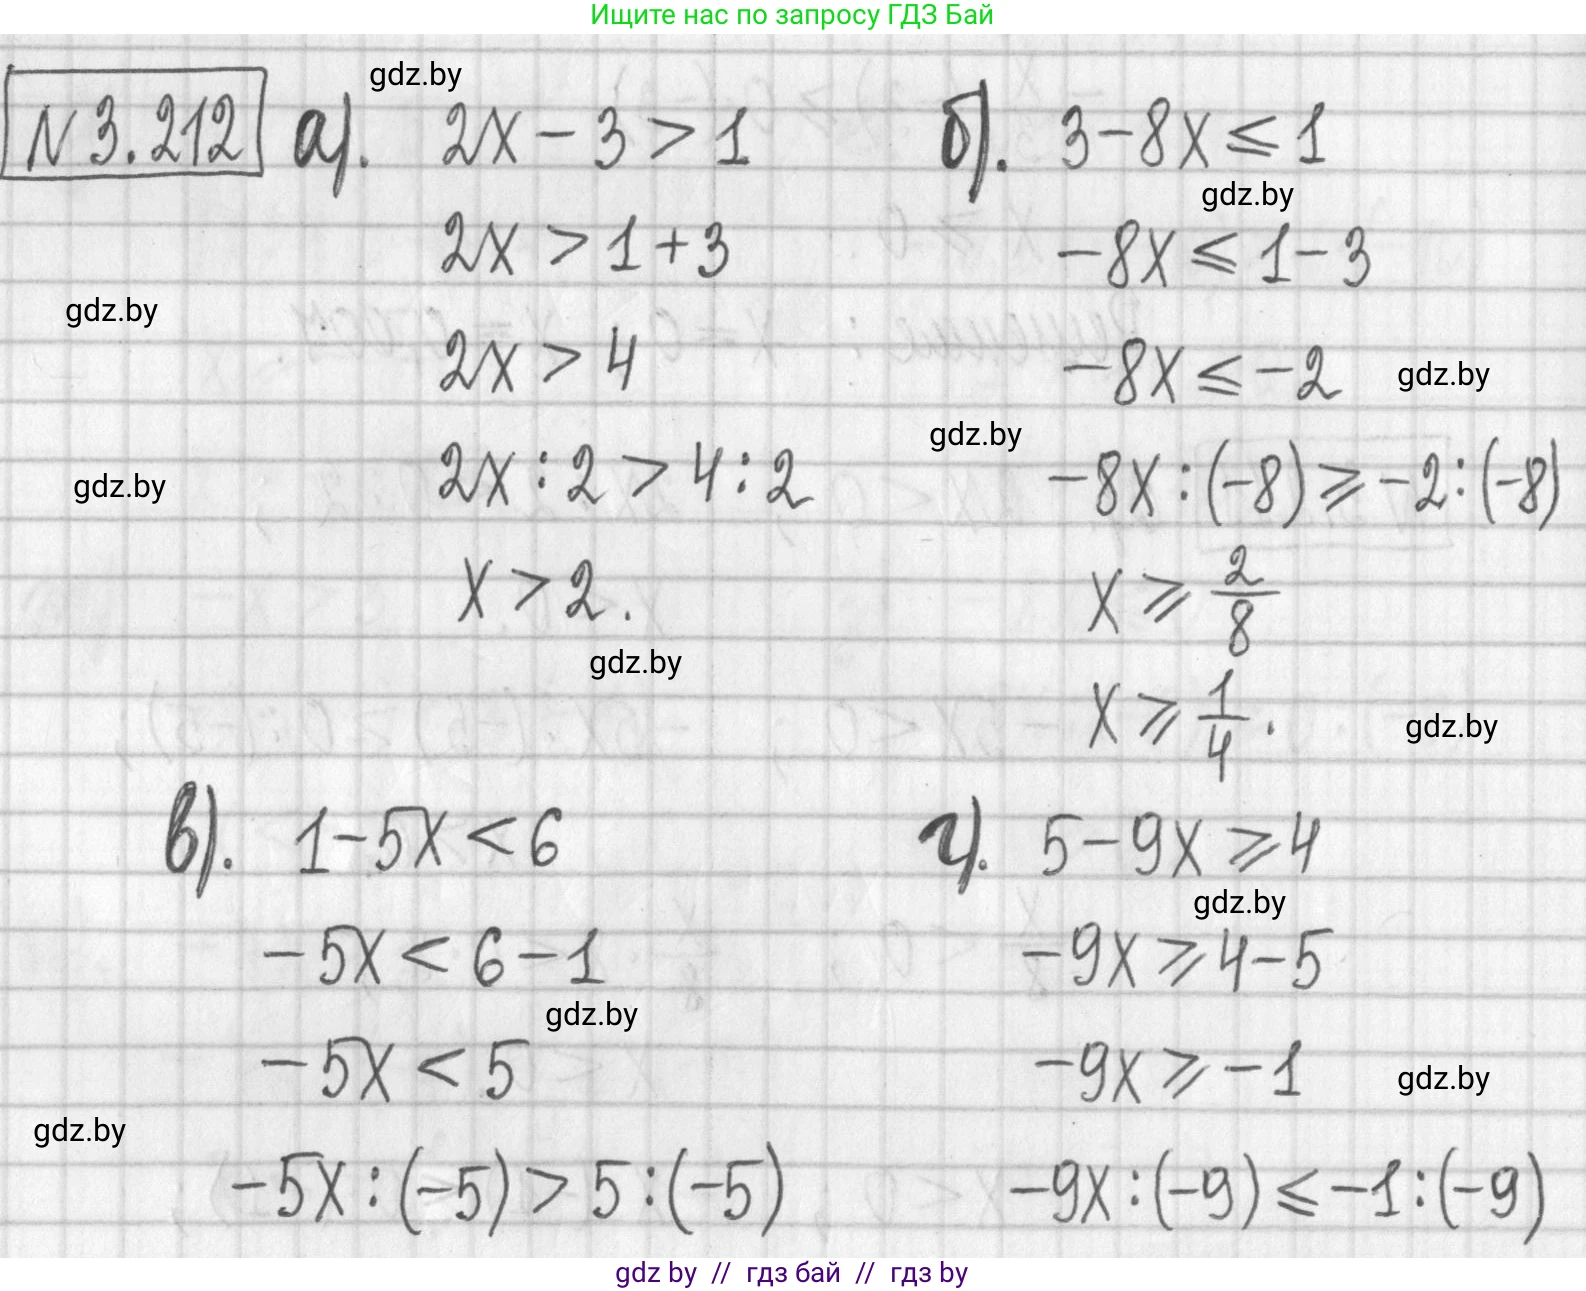 Ищите нас по запросу ГДЗ Бай
gdz.by
N 3.212 а). 2x - 3 > 1
2x > 1 + 3
gdz.by
2x > 4
gdz.by
2x : 2 > 4 : 2
x > 2.
gdz.by
б). 3 - 8x ≤ 1
gdz.by
-8x ≤ 1 - 3
-8x ≤ -2
gdz.by
gdz.by
-8x : (-8) ≥ -2 : (-8)
x ≥ 2/8
x ≥ 1/4.
gdz.by
в). 1 - 5x < 6
-5x < 6 - 1
gdz.by
-5x < 5
gdz.by
-5x : (-5) > 5 : (-5)
г). 5 - 9x ≥ 4
gdz.by
-9x ≥ 4 - 5
-9x ≥ -1
gdz.by
-9x : (-9) ≤ -1 : (-9)
gdz by // гдз бай // gdz by